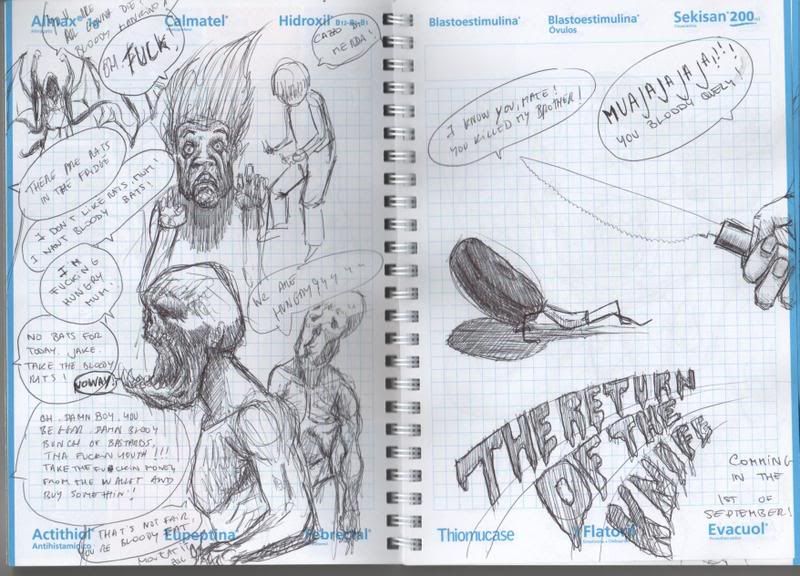 Almax®
Calmatel®
Hidroxil® B12-B6-B1
BLOODY
OH, FUCK,
CAZZO DI
MERDA!
THERE ARE RATS
IN THE FRIDGE
I DON'T LIKE RATS, MUM!
I WANT BLOODY
BATS!
I'M
FUCKING
HUNGRY
MUM!
WE ARE
HUNGRYYYY
NO BATS FOR
TODAY, JAKE.
TAKE THE BLOODY
RATS!
NO WAY!
OH, DAMN BOY, YOU
DAMN BLOODY
BUNCH OF BASTARDS,
THA FUCKIN YOUTH!!!
TAKE THE FUCKIN MONEY
FROM THE WALLET AND
BUY SOMETHIN'!
THAT'S NOT FAIR,
YOU'RE BLOODY
Actithiol®
Antihistamínico
Eupeptina®
Cerebrol®
Blastoestimulina®
Blastoestimulina®
Óvulos
Sekisan®200 ml
I KNOW YOU, MATE!
YOU KILLED MY BROTHER!
MUAJAJAJAJA!!!
YOU BLOODY
THE RETURN
OF THE
KNIFE
COMMING
IN THE
1ST OF
SEPTEMBER!
Thiomucase®
Flatoril®
Evacuol®